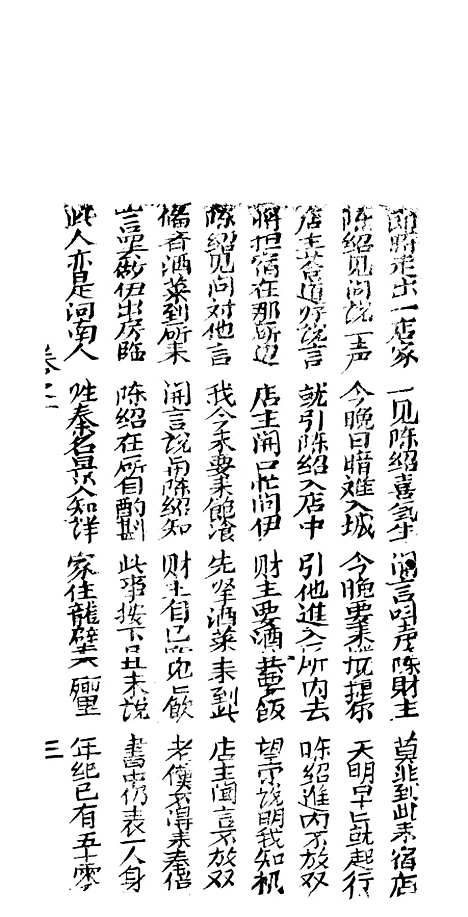 即時走出一店家 一见陈绍喜氣生 闻言叫声陈財主 莫非到此来宿店
陈绍见问说一声 今晚日暗难入城 今晚要来 天明早旦就起行
店主荅道好说言 就引陈绍入店中 引他進入所内去 陈绍進内不放双
將担宿在那所边 店主開口忙问伊 财主要酒共要飯 望尔说明我知机
陈绍见问对他言 我今未要来飽飡 先拏酒菜来到此 店主闻言不放双
偹者酒菜到所来 開言说甭陈绍知 财主自己心飲 老僕不得来奉陪
言罢辞伊出房臨 陈绍在所自酌斟 此事按下且未说 書中仍表一人身
此人亦是河南人 姓秦名人知详 家住龍壁六里 年纪已有五十零
卷之一 三